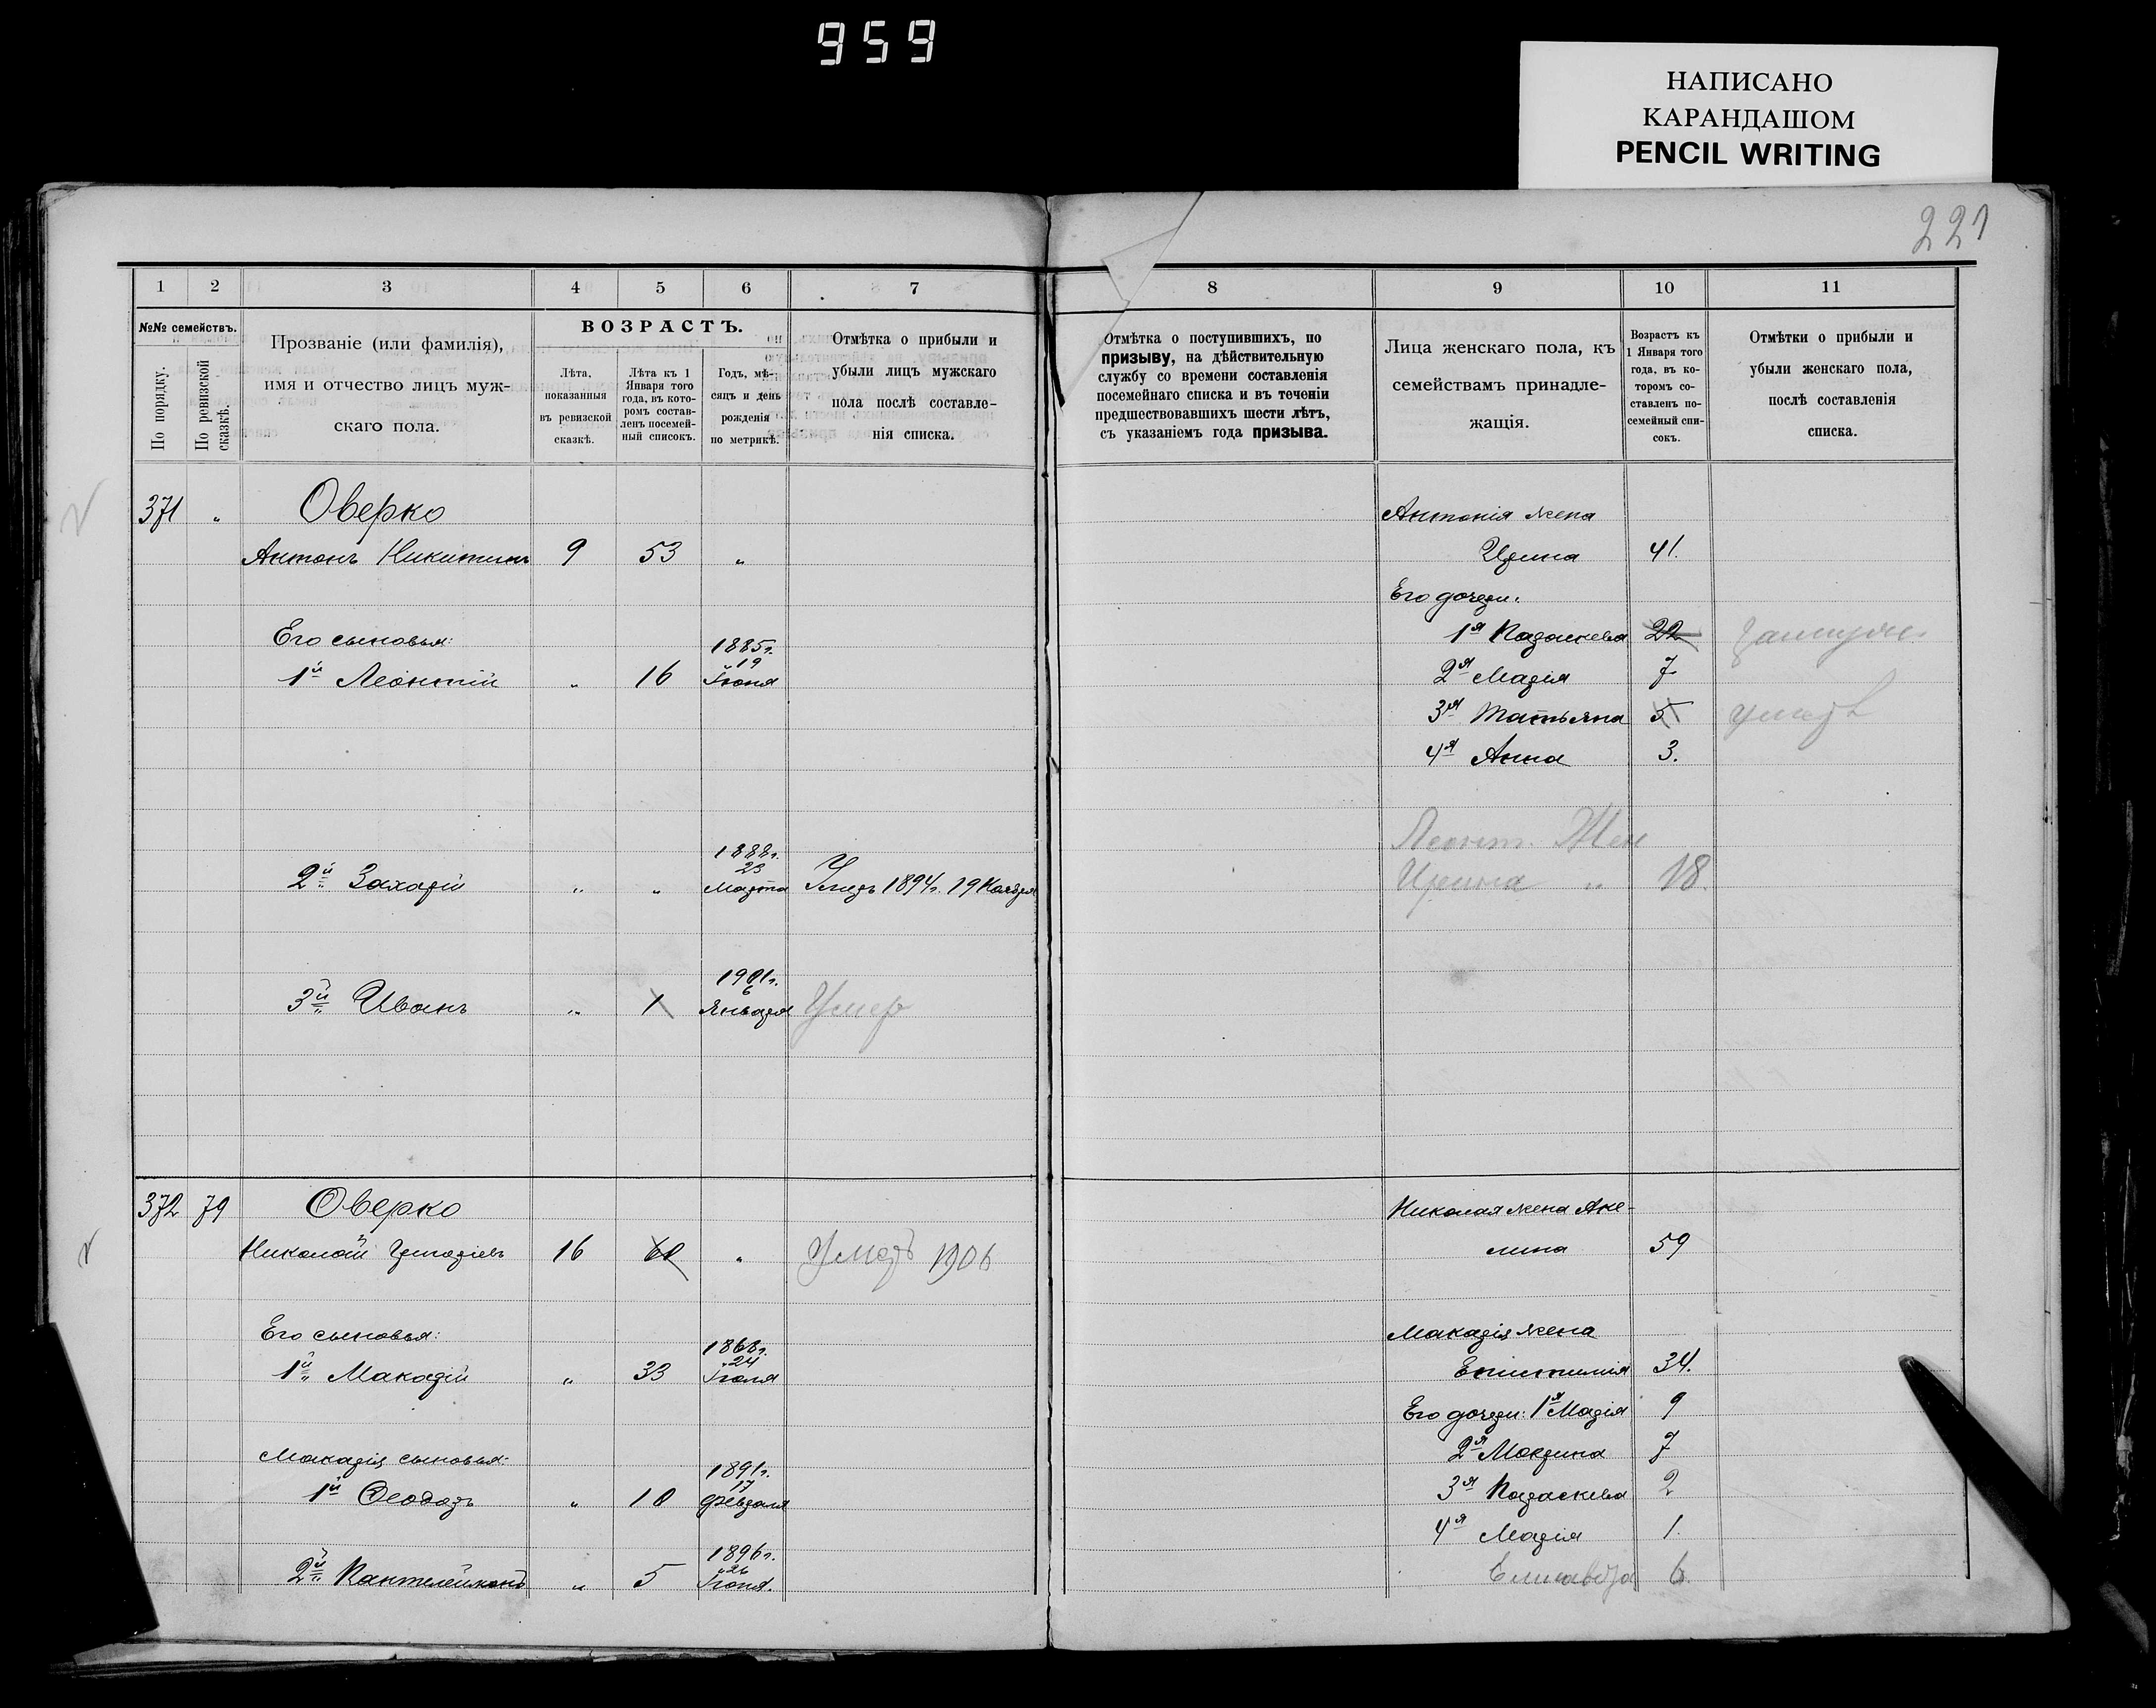 959
НАПИСАНО
КАРАНДАШОМ
PENCIL WRITING
221
1 2 3 4 5 6 7
№№ семействъ.
По порядку.
По ревизской сказкѣ.
Прозваніе (или фамилія),
имя и отчество лицъ муж-
скаго пола.
ВОЗРАСТЪ.
Лѣта,
показанныя
въ ревизской
сказкѣ.
Лѣта къ 1
Января того
года, въ кото-
ромъ состав-
ленъ посемей-
ный списокъ.
Годъ, мѣ-
сяцъ и день
рожденія
по метрикѣ.
Отмѣтка о прибыли и
убыли лицъ мужскаго
пола послѣ составле-
нія списка.
371 " Оверко
Антонъ Никитинъ 9 53 "
Его сыновья:
1й Леонтій " 16 1885г. 19 Іюня
2й Захарій " " 1888г. 23 Марта Умеръ 1894г. 19 Ноября
3й Иванъ " 1 1901г. 6 Января Умер
372 79 Оверко
Николай 16 60 " Умеръ 1906
Его сыновья:
1й Макарій " 33 1868г. 24 Іюля
Макарія сыновья:
1й Феодоръ " 10 1891г. 17 Февраля
2й Пантелеймонъ " 5 1896г. 26 Іюня.
8 9 10 11
Отмѣтка о поступившихъ, по
призыву, на дѣйствительную
службу со времени составленія
посемейнаго списка и въ теченіи
предшествовавшихъ шести лѣтъ,
съ указаніемъ года призыва.
Лица женскаго пола, къ
семействамъ принадле-
жащія.
Возрастъ къ
1 Января того
года, въ ко-
торомъ со-
ставленъ по-
семейный спи-
сокъ.
Отмѣтки о прибыли и
убыли женскаго пола,
послѣ составленія
списка.
Антонія жена
Ирина 41.
Его дочери:
1я Параскева 22 замуже
2я Марія 7
3я Татьяна 5 умеръ
4я Анна 3.
Леонт. Жен
Ирина " 18.
Николая жена Аке-
лина 59
Макарія жена
Епистимія 34.
Его дочери: 1я Марія 9
2я Мокрина 7
3я Параскева 2
4я Марія 1.
Елисавета 6.